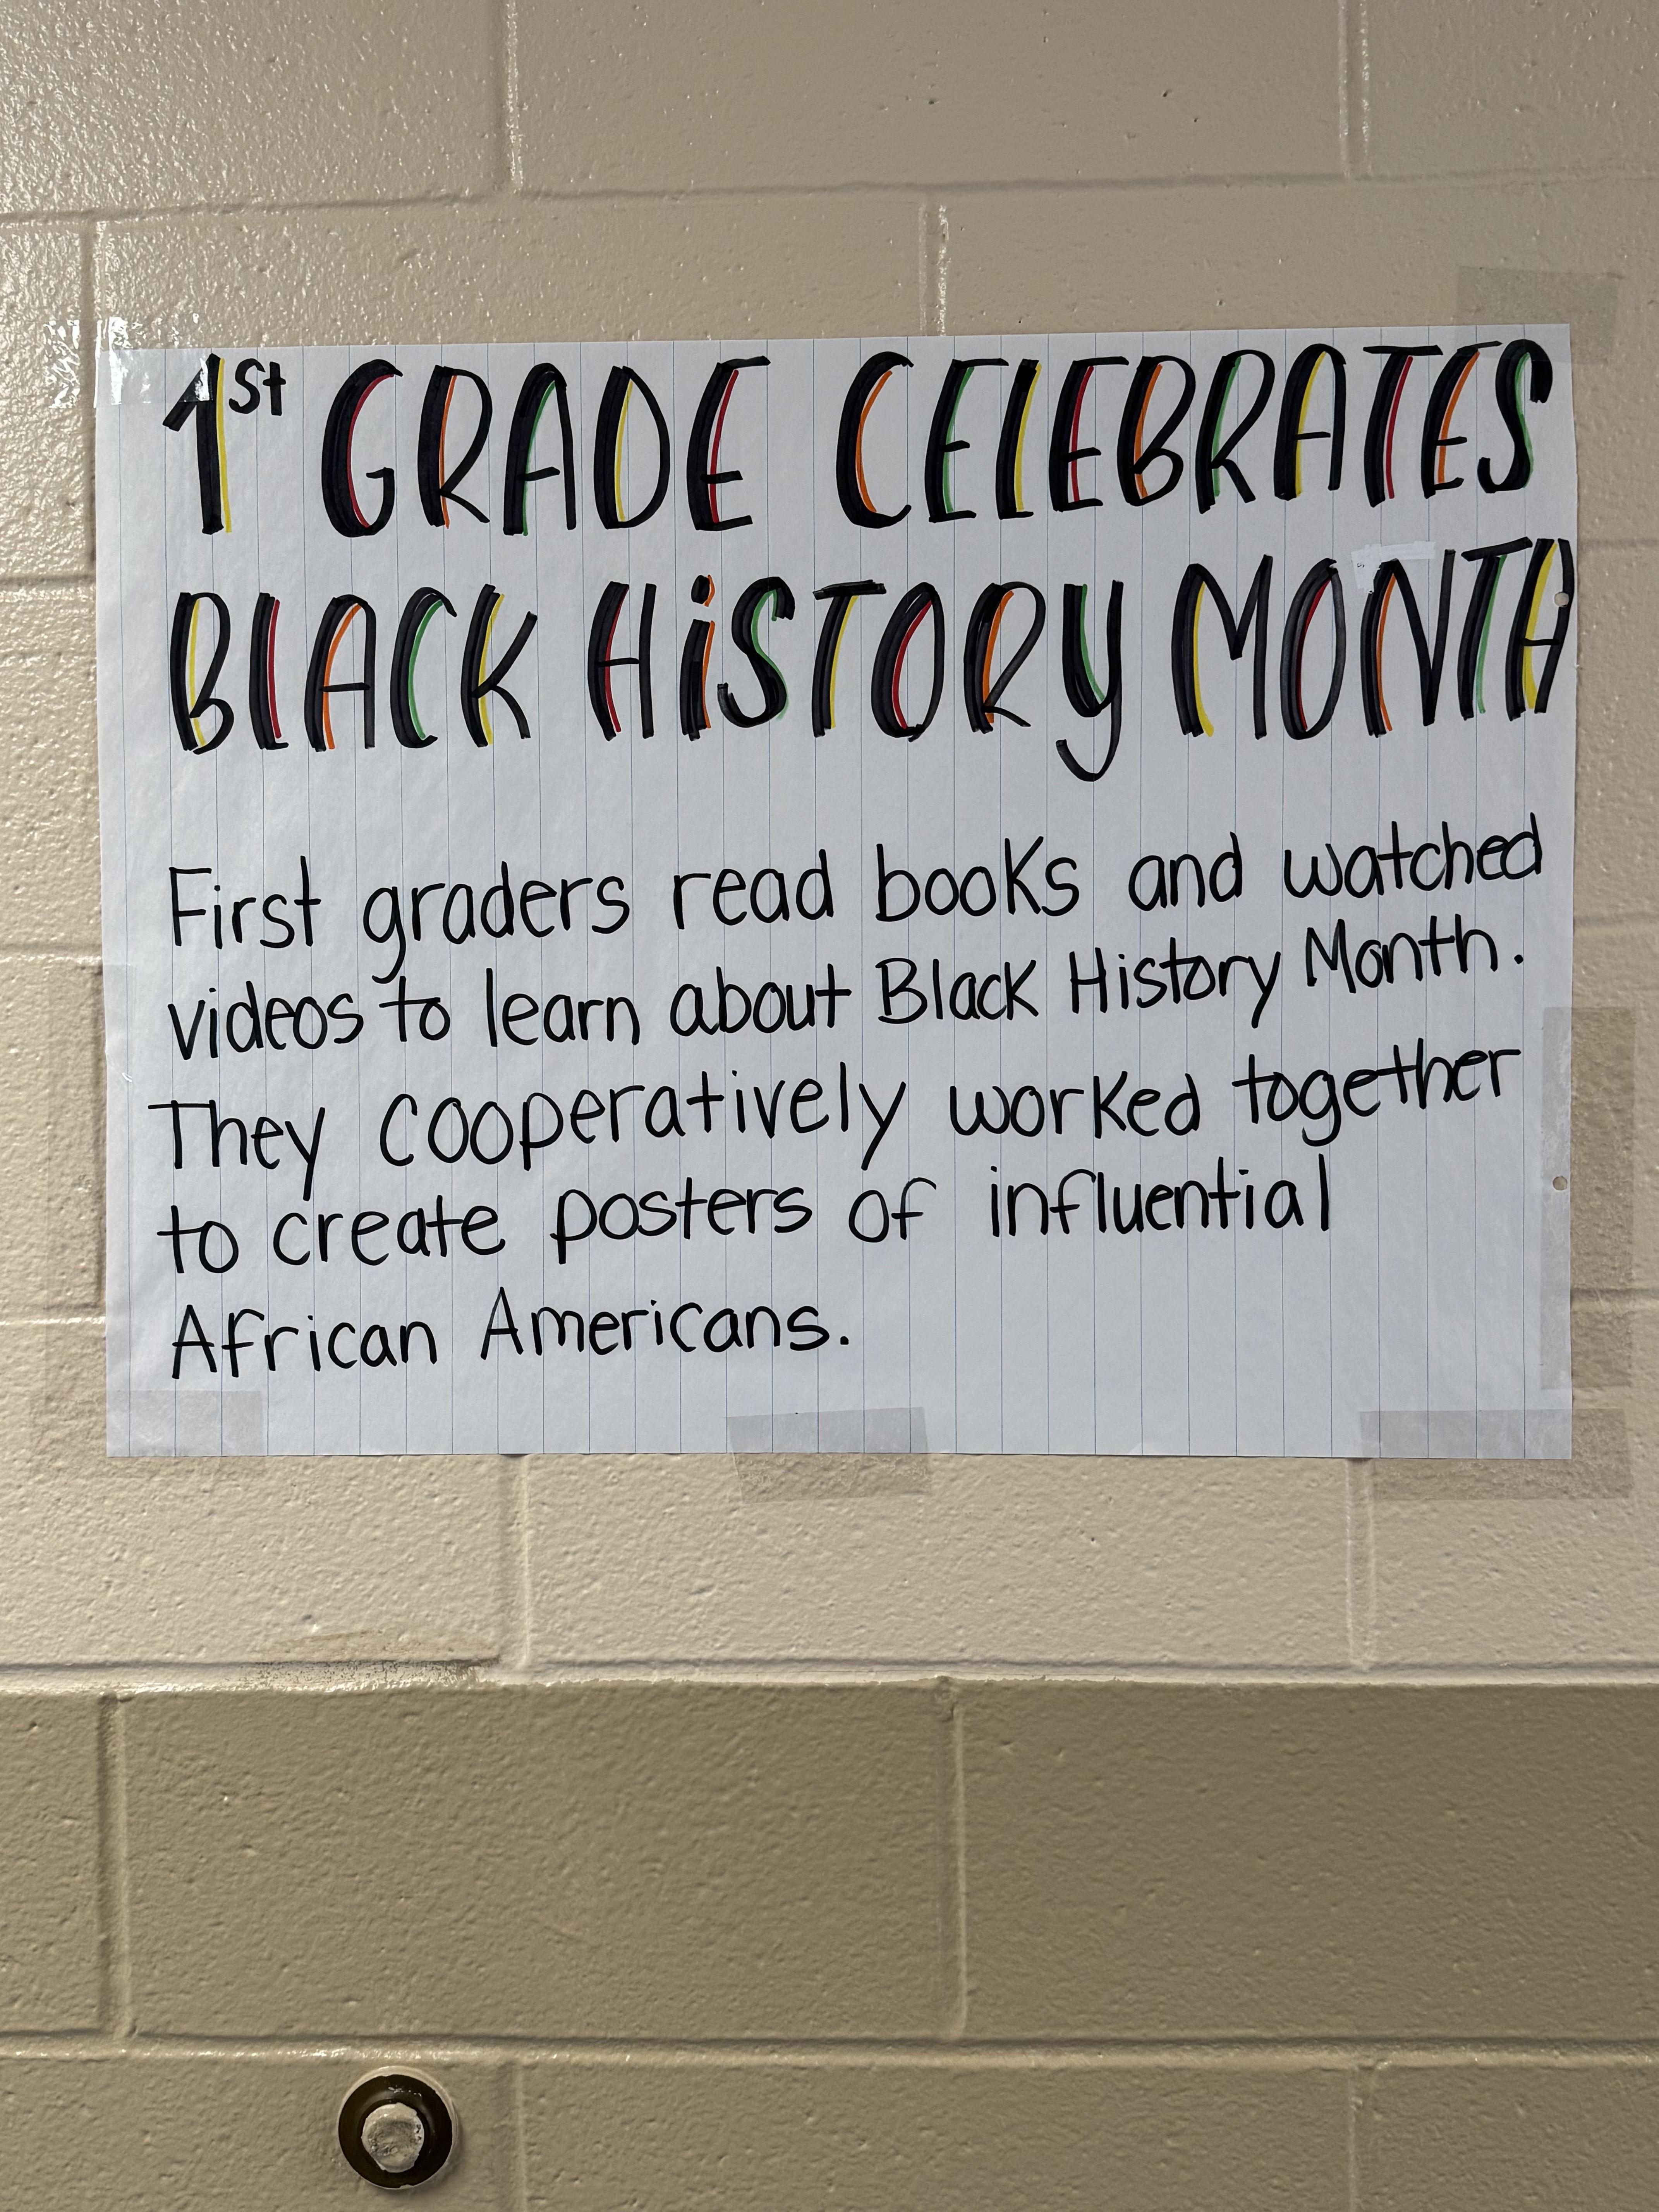 1st GRADE CELEBRATES
BLACK HiSTORY MONTH
First graders read books and watched
videos to learn about Black History Month.
They cooperatively worked together
to create posters of influential
African Americans.